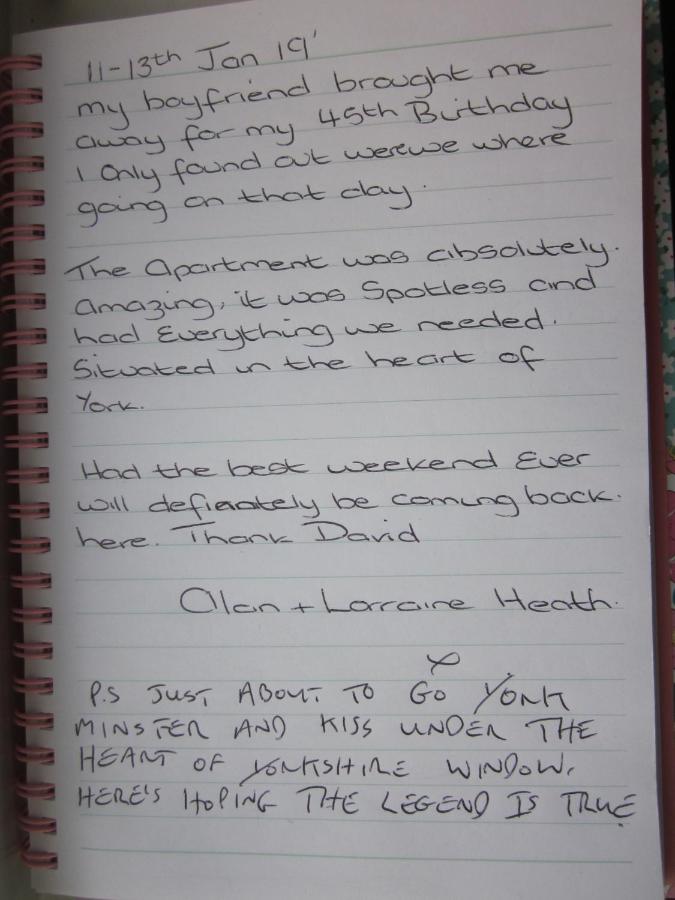 11-13th Jan 19'
my boyfriend brought me
away for my 45th Birthday
I Only found out werewe where
going on that day.
The Apartment was absolutely.
amazing, it was Spotless and
had Everything we needed.
Situated in the heart of
York.
Had the best weekend Ever
will definately be coming back.
here. Thank David
Alan + Lorraine Heath.
x
P.S JUST ABOUT TO GO YORK
MINSTER AND KISS UNDER THE
HEART OF YORKSHIRE WINDOW,
HERE'S HOPING THE LEGEND IS TRUE.